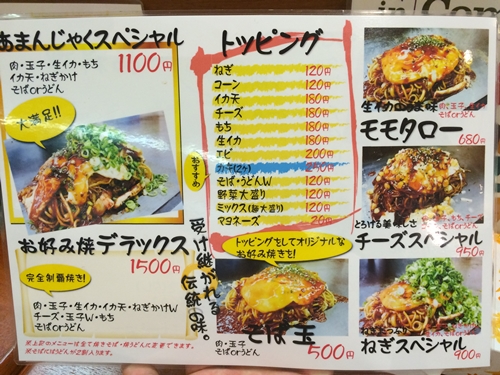 あまんじゃくスペシャル
肉・玉子・生イカ・もち
イカ天・ねぎかけ
そばorうどん
1100円
大満足!!
お好み焼デラックス
1500円
完全制覇焼き!
肉・玉子・生イカ・イカ天・ねぎかけW
チーズ・玉子W・もち
そばorうどん
※上記のメニューは全て焼きそば・焼うどんに変更できます。
トッピング
おすすめ
ねぎ 120円
コーン 120円
イカ天 180円
チーズ 180円
もち 180円
生イカ 180円
エビ 200円
カキ(2ケ) 250円
そば・うどんW 120円
野菜大盛り 120円
ミックス(麺大盛り) 120円
マヨネーズ 20円
受け継がれる
伝統の味。
トッピングをしてオリジナルな
お好み焼きを!
そば玉
肉・玉子
そばorうどん
500円
モモタロー
680円
とろける美味しさ
チーズスペシャル
950円
ねぎスペシャル
900円